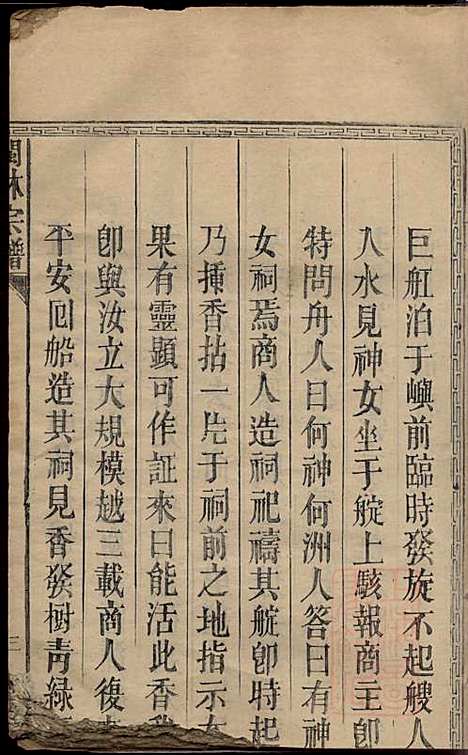 巨舡泊于嶼前臨時發旋不起艘人
入水見神女坐于椗上駭報商主卽
特問舟人曰何神何洲人答曰有神
女祠焉商人造祠祀禱其椗卽時起
乃揷香拈一片于祠前之地指示
果有靈顯可作証來日能活此香
卽與汝立大規模越三載商人復
平安回船造其祠見香發樹靑綠
林宗譜
三